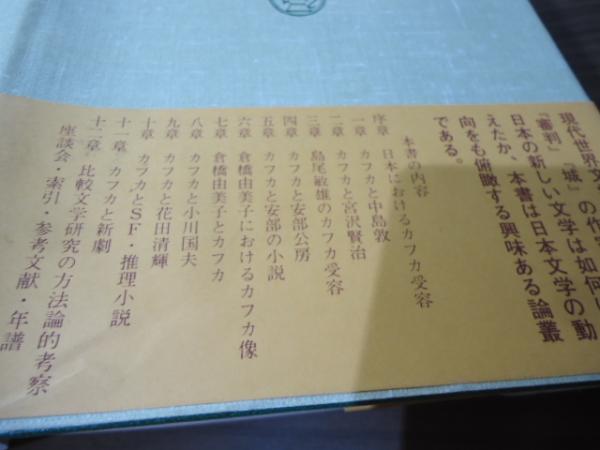 現代世界文
『審判』『城』の作
日本の新しい文学は如何
えたか、本書は日本文学の動
向をも俯瞰する興味ある論叢
である。
本書の内容
序章 日本におけるカフカ受容
一章 カフカと中島敦
二章 カフカと宮沢賢治
三章 島尾敏雄のカフカ受容
四章 カフカと安部公房
五章 カフカと安部の小説
六章 倉橋由美子におけるカフカ像
七章 倉橋由美子とカフカ
八章 カフカと小川国夫
九章 カフカと花田清輝
十章 カフカとSF・推理小説
十一章 カフカと新劇
十二章 比較文学研究の方法論的考察
座談会・索引・参考文献・年譜